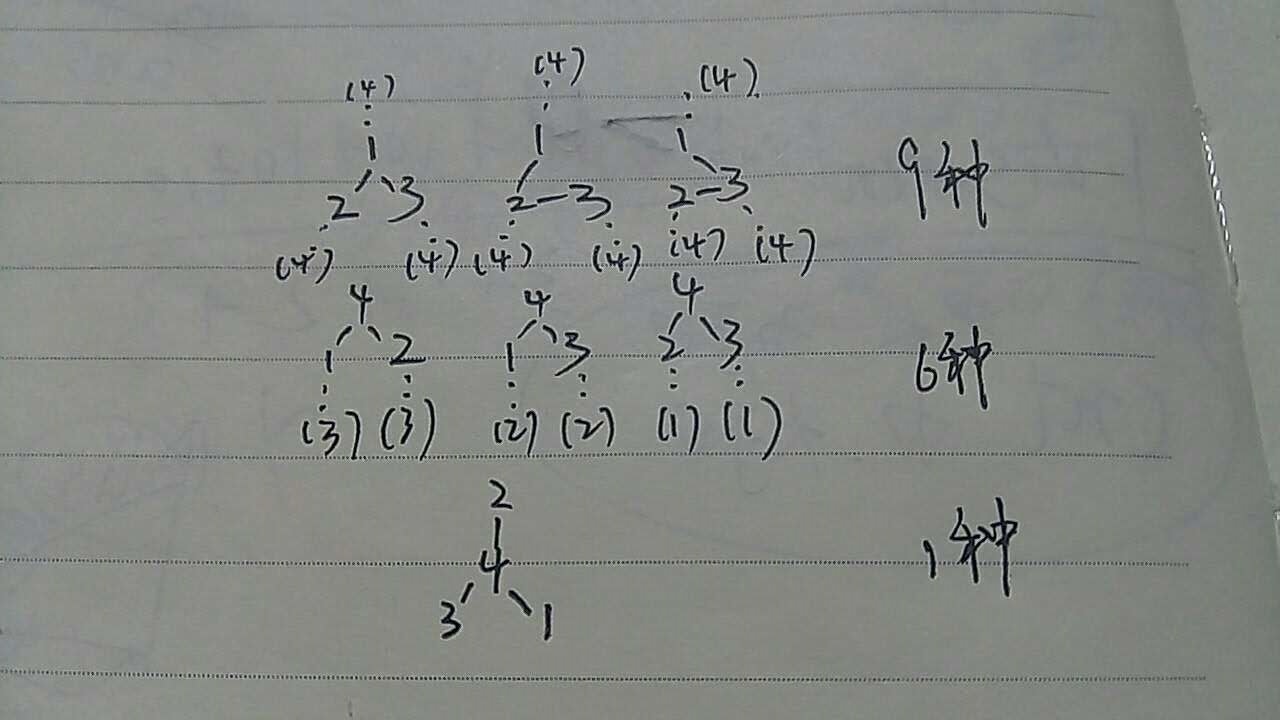 (4) (4) (4)
1 1 1 9种
2 3 2-3 2-3
(4) (4) (4) (4) (4) (4)
4 4 4
1 2 1 3 2 3 6种
(3) (3) (2) (2) (1) (1)
2
4 1种
3 1